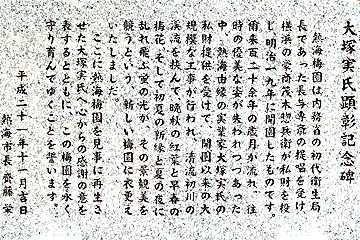 大塚実氏顕彰記念碑
熱海梅園は内務省の初代衛生局
長であった長与専斎の提唱を受け
横浜の豪商茂木惣兵衛が私財を投
じ、明治一九年に開園したものです。
爾来百二十余年の歳月が流れ、往
時の優美な姿が失われつつあった
中、熱海由縁の実業家大塚実氏の
私財提供を受けて、開園以来の大
規模な工事が行われ、清流初川の
渓流を挟んで、晩秋の紅葉と早春の
梅花、そして初夏の新緑と夏の夜に
乱れ飛ぶ蛍の光が、その景観美を
競うという、新しい梅園に衣更え
いたしました。
ここに熱海梅園を見事に再生さ
せた大塚実氏へ心からの感謝の意を
表するとともに、この梅園を永く
守り育んでゆくことを誓います。
平成二十一年十一月吉日
熱海市長 齊藤 栄